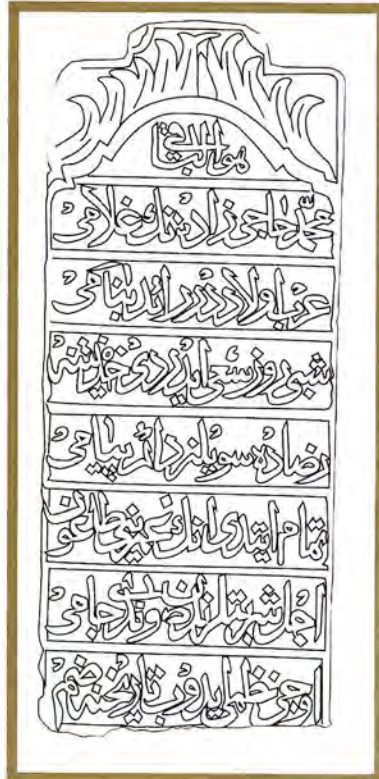 هو الباقی
محمد حاجی زاده نك غلامی
عرب اولاد
شب و روز سعی ایدردی خدمتنه
رضاده سویلنر پیامی
تمام ایتدی انك عمرینی طاعون
اجل شربتلرندن صوندی جامی
نظم ایدوب تاریخنه ضم